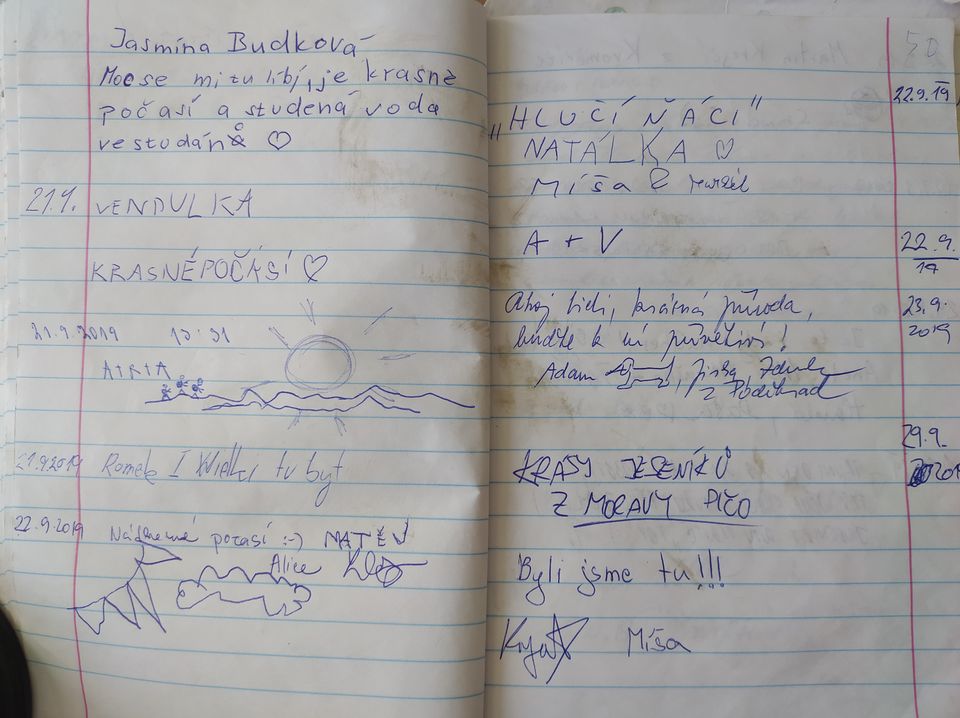 Jasmína Budková
Moc se mi tu líbí, je krasné
počasí a studená voda
ve studán
21.9. VENDULKA
KRASNÉ POČASÍ
21.9.2019 13:31
21.9.2019 Romek I Wielki tu był
22.9.2019 Nádherné počasí :-) MATĚJ
Alice
50
22.9.19
„HLUČÍ ŇÁCI"
NATÁLKA
Míša
A + V 22.9.
19
Ahoj lidi, krásná příroda, 23.9.
buďte k ní přívětiví! 2019
Adam , Jirka,
z Poděbrad
29.9.
KRÁSY JESENÍKŮ 2019
Z MORAVY PIČO
Byli jsme tu!!!
Míša